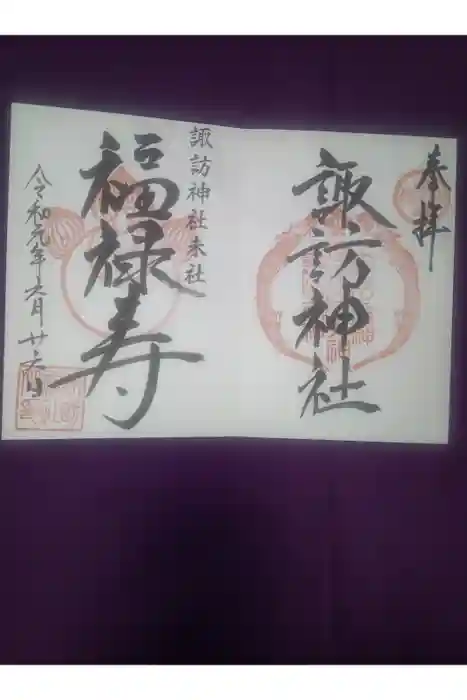 奉拝
諏訪神社
諏訪神社末社
福禄寿
令和元年六月廿六日